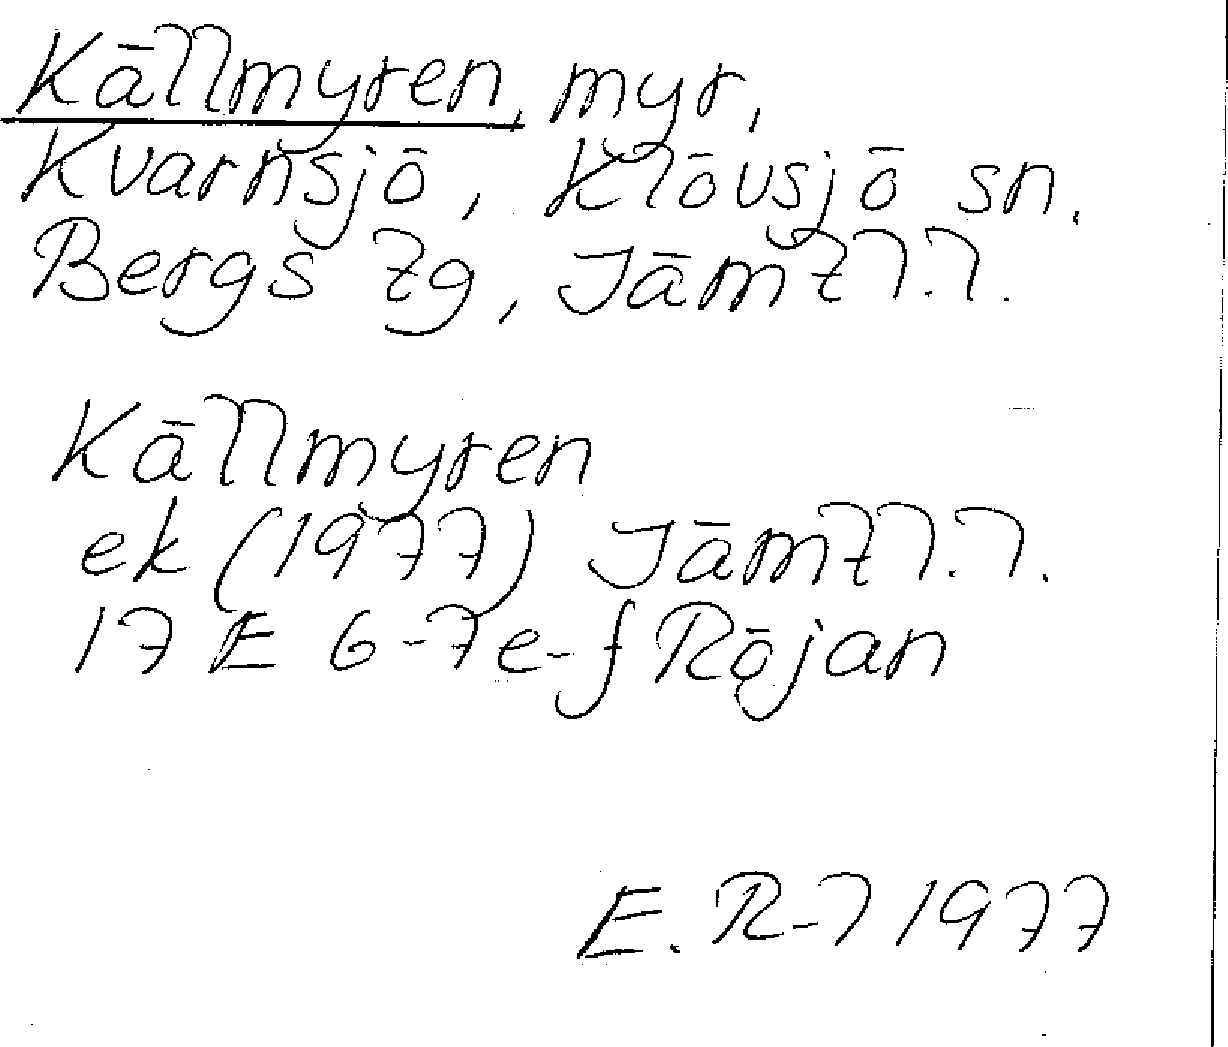 Källmyren, myr,
Kvarnsjö, Klövsjö sn.
Bergs tg, Jämtl.l.
Källmyren
ek (1977) Jämtl.l.
17 E 6-7e-f Röjan
E. R-l 1977